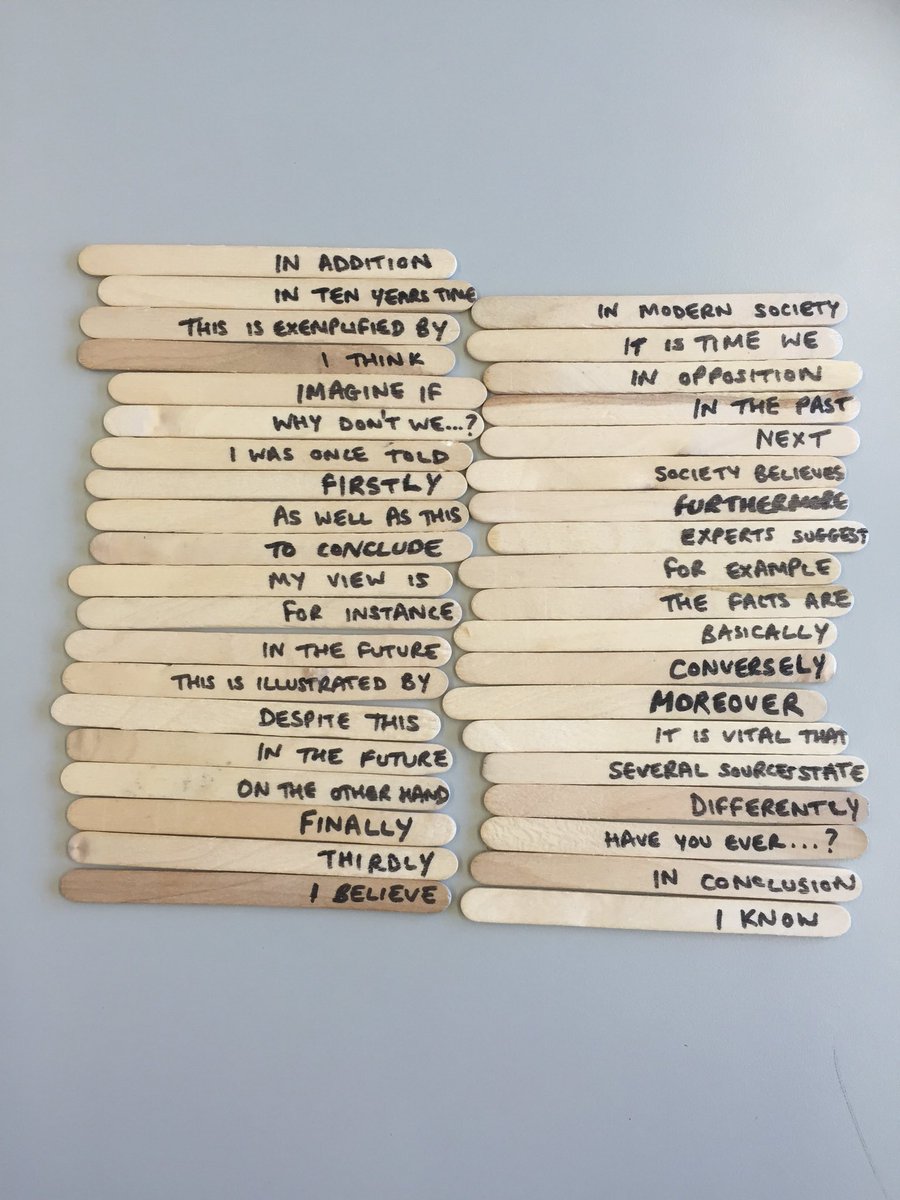 IN ADDITION
IN TEN YEARS TIME
THIS IS EXEMPLIFIED BY
I THINK
IMAGINE IF
WHY DON'T WE...?
I WAS ONCE TOLD
FIRSTLY
AS WELL AS THIS
TO CONCLUDE
MY VIEW IS
FOR INSTANCE
IN THE FUTURE
THIS IS ILLUSTRATED BY
DESPITE THIS
IN THE FUTURE
ON THE OTHER HAND
FINALLY
THIRDLY
I BELIEVE
IN MODERN SOCIETY
IT IS TIME WE
IN OPPOSITION
IN THE PAST
NEXT
SOCIETY BELIEVES
FURTHERMORE
EXPERTS SUGGEST
FOR EXAMPLE
THE FACTS ARE
BASICALLY
CONVERSELY
MOREOVER
IT IS VITAL THAT
SEVERAL SOURCES STATE
DIFFERENTLY
HAVE YOU EVER...?
IN CONCLUSION
I KNOW